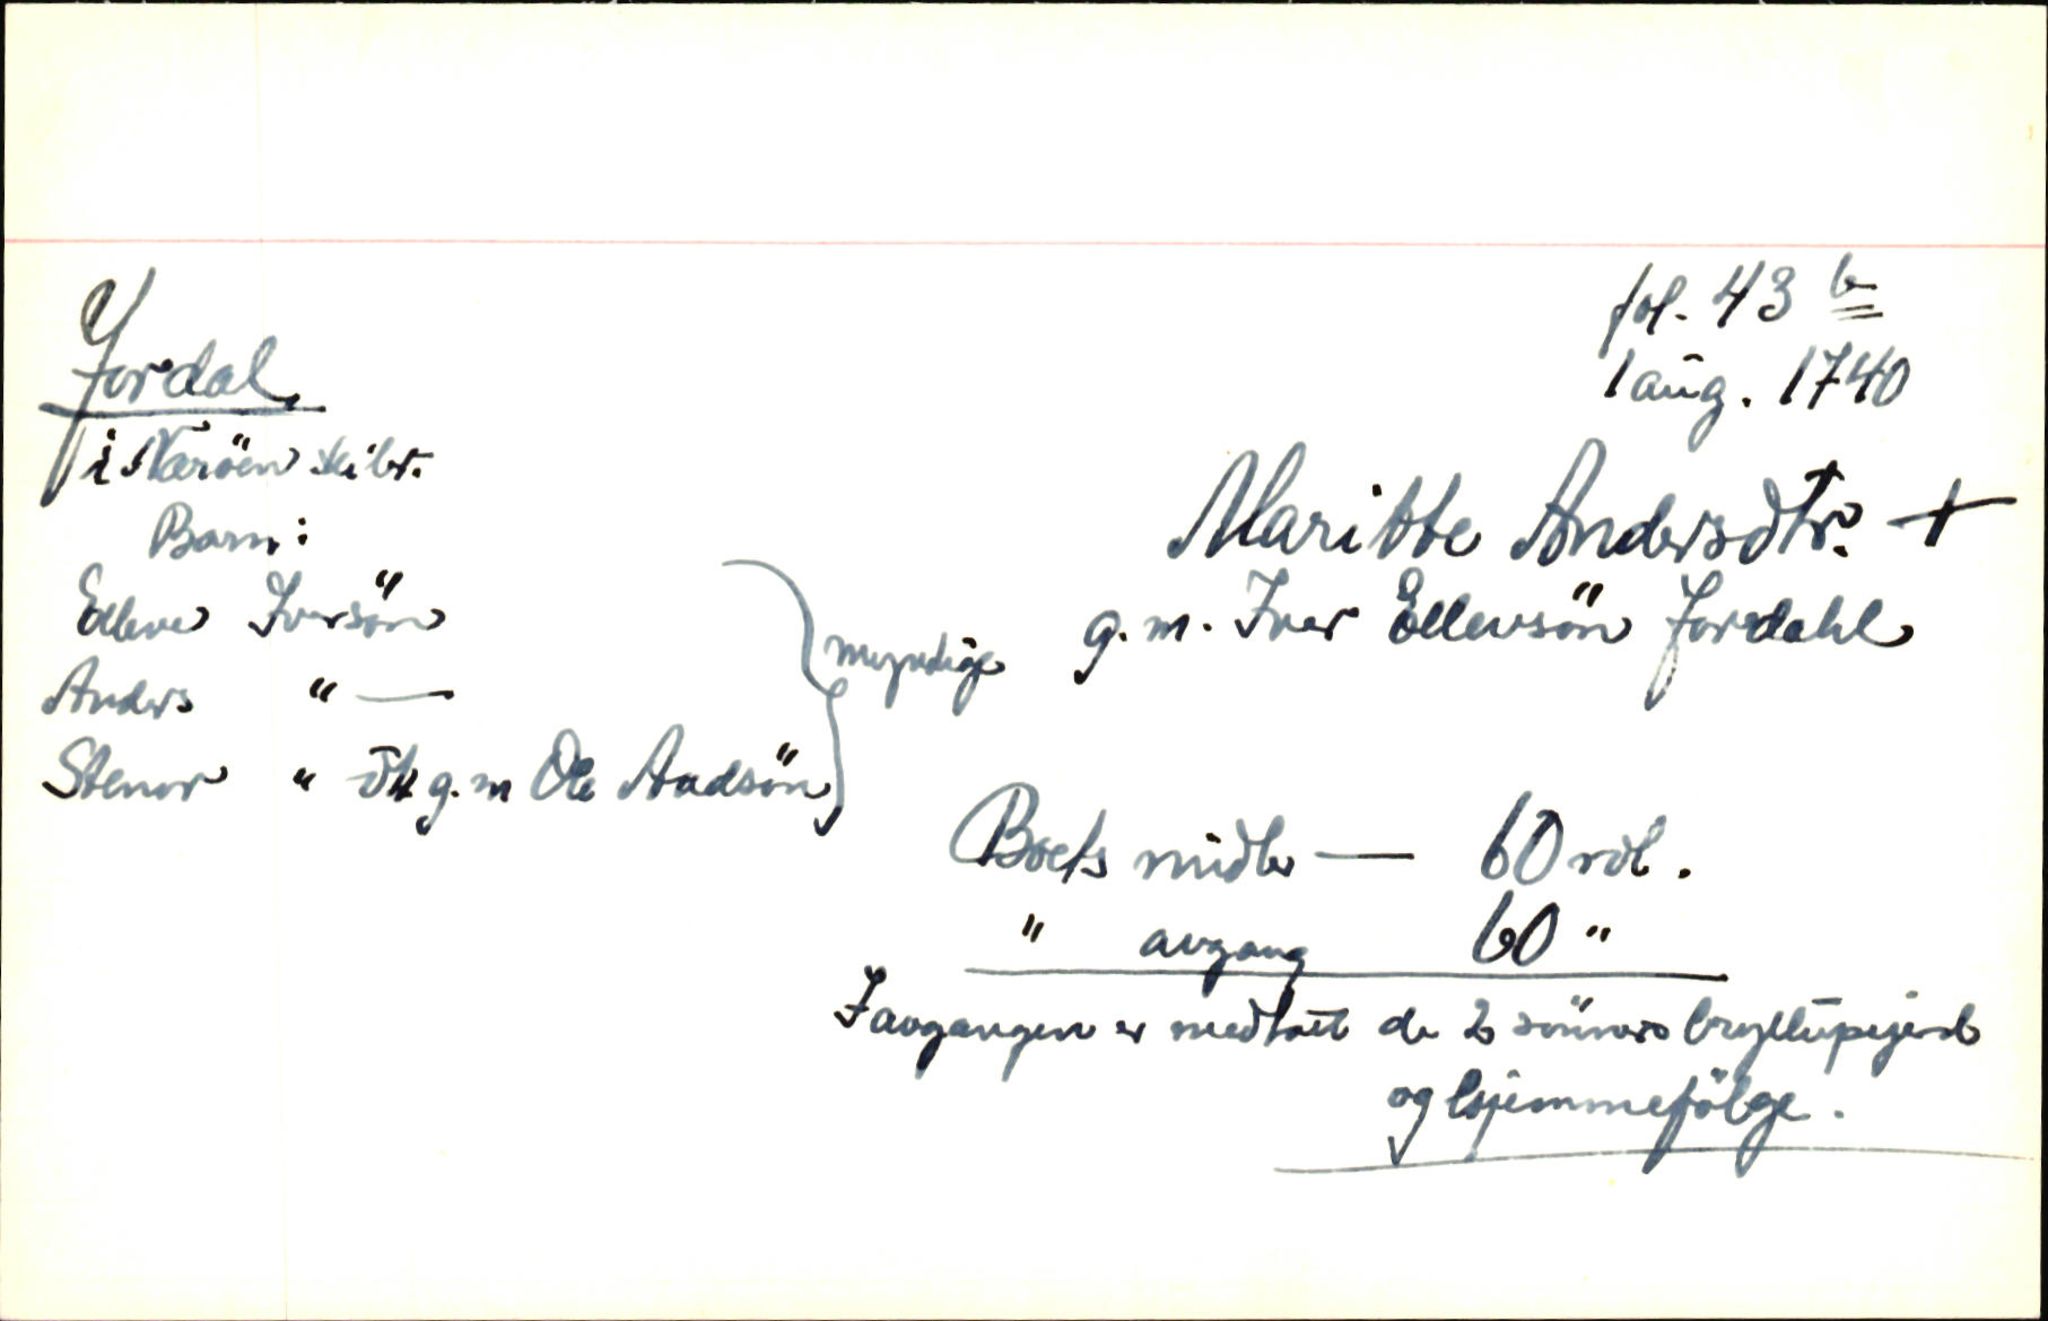 fol. 43 b
1 aug. 1740
Jordal
i Nærøen skibr.
Maritte Andersdtr. +
g.m. Iver Ellevsön Jordahl
Barn:
Elleve Iversön
Anders " —
Stenor " dtr g.m Ole Aadsön
} myndige
Boets midler — 60 rdl.
" avgang 60 "
I avgangen er medtatt de 2 sönners bryllupsgjerd
og hjemmefölge.